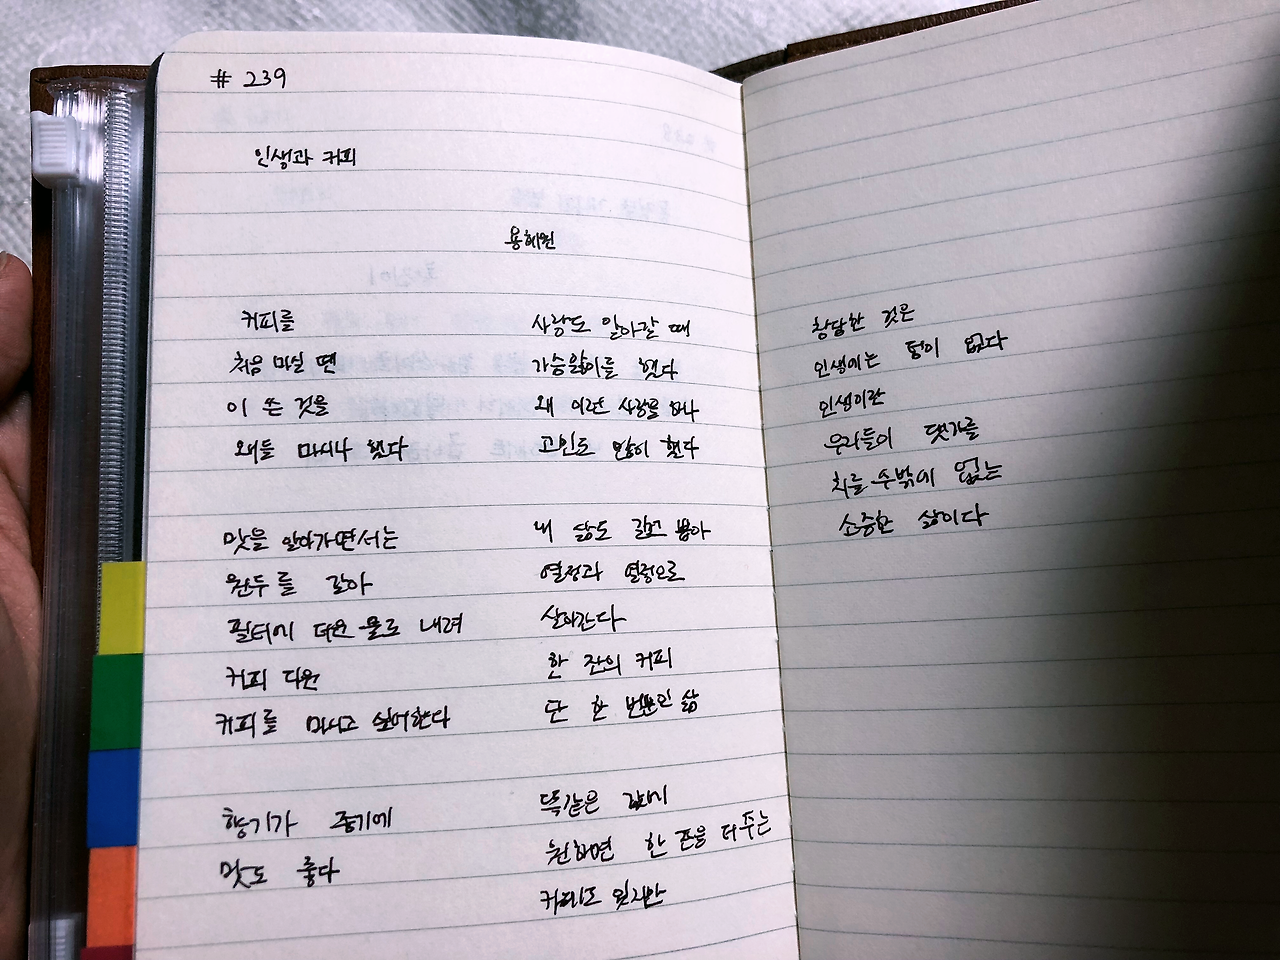 # 239
인생과 커피
용혜원
커피를
처음 마실 땐
이 쓴 것을
왜들 마시나 했다
맛을 알아가면서는
원두를 갈아
필터에 더운 물로 내려
커피 다운
커피를 마시고 싶어한다
향기가 좋기에
맛도 좋다
사랑도 알아갈 때
가슴앓이를 했다
왜 이런 사랑을 하나
고민도 많이 했다
내 삶도 길고
열정과 열정으로
살아간다
한 잔의 커피
단 한 번뿐인 삶
똑같은 값에
원하면 한 잔을 더 주는
커피도 있지만
황당한 것은
인생에는 덤이 없다
인생이란
우리들이 댓가를
치를 수밖에 없는
소중한 삶이다